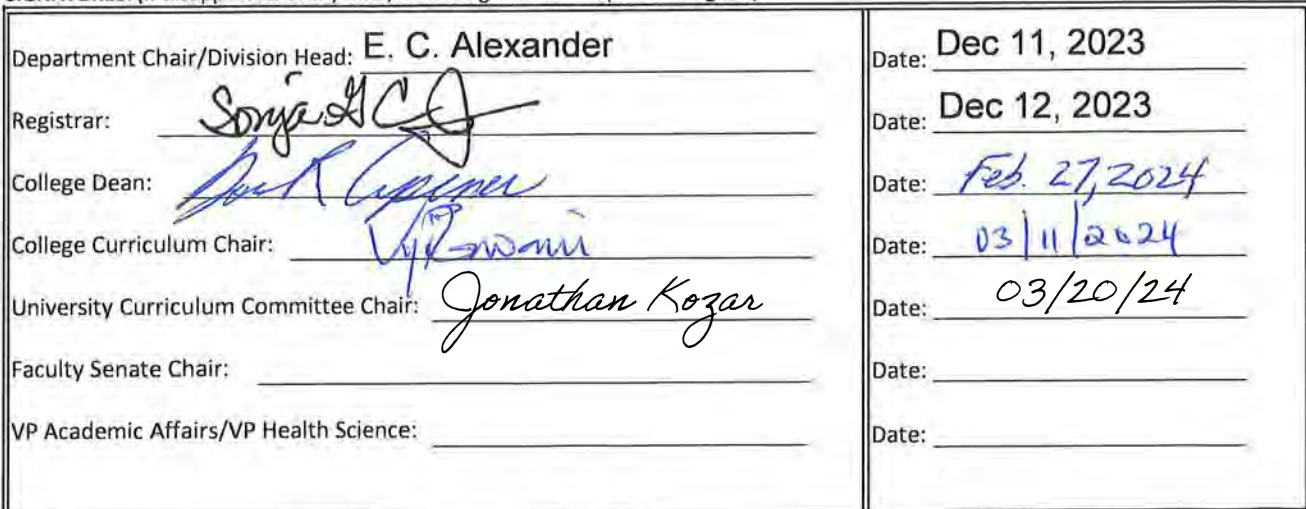 Department Chair/Division Head: E. C. Alexander Date: Dec 11, 2023
Registrar: Sonja G Date: Dec 12, 2023
College Dean: Date: Feb. 27, 2024
College Curriculum Chair: Date: 03/11/2024
University Curriculum Committee Chair: Jonathan Kozar Date: 03/20/24
Faculty Senate Chair: Date:
VP Academic Affairs/VP Health Science: Date: